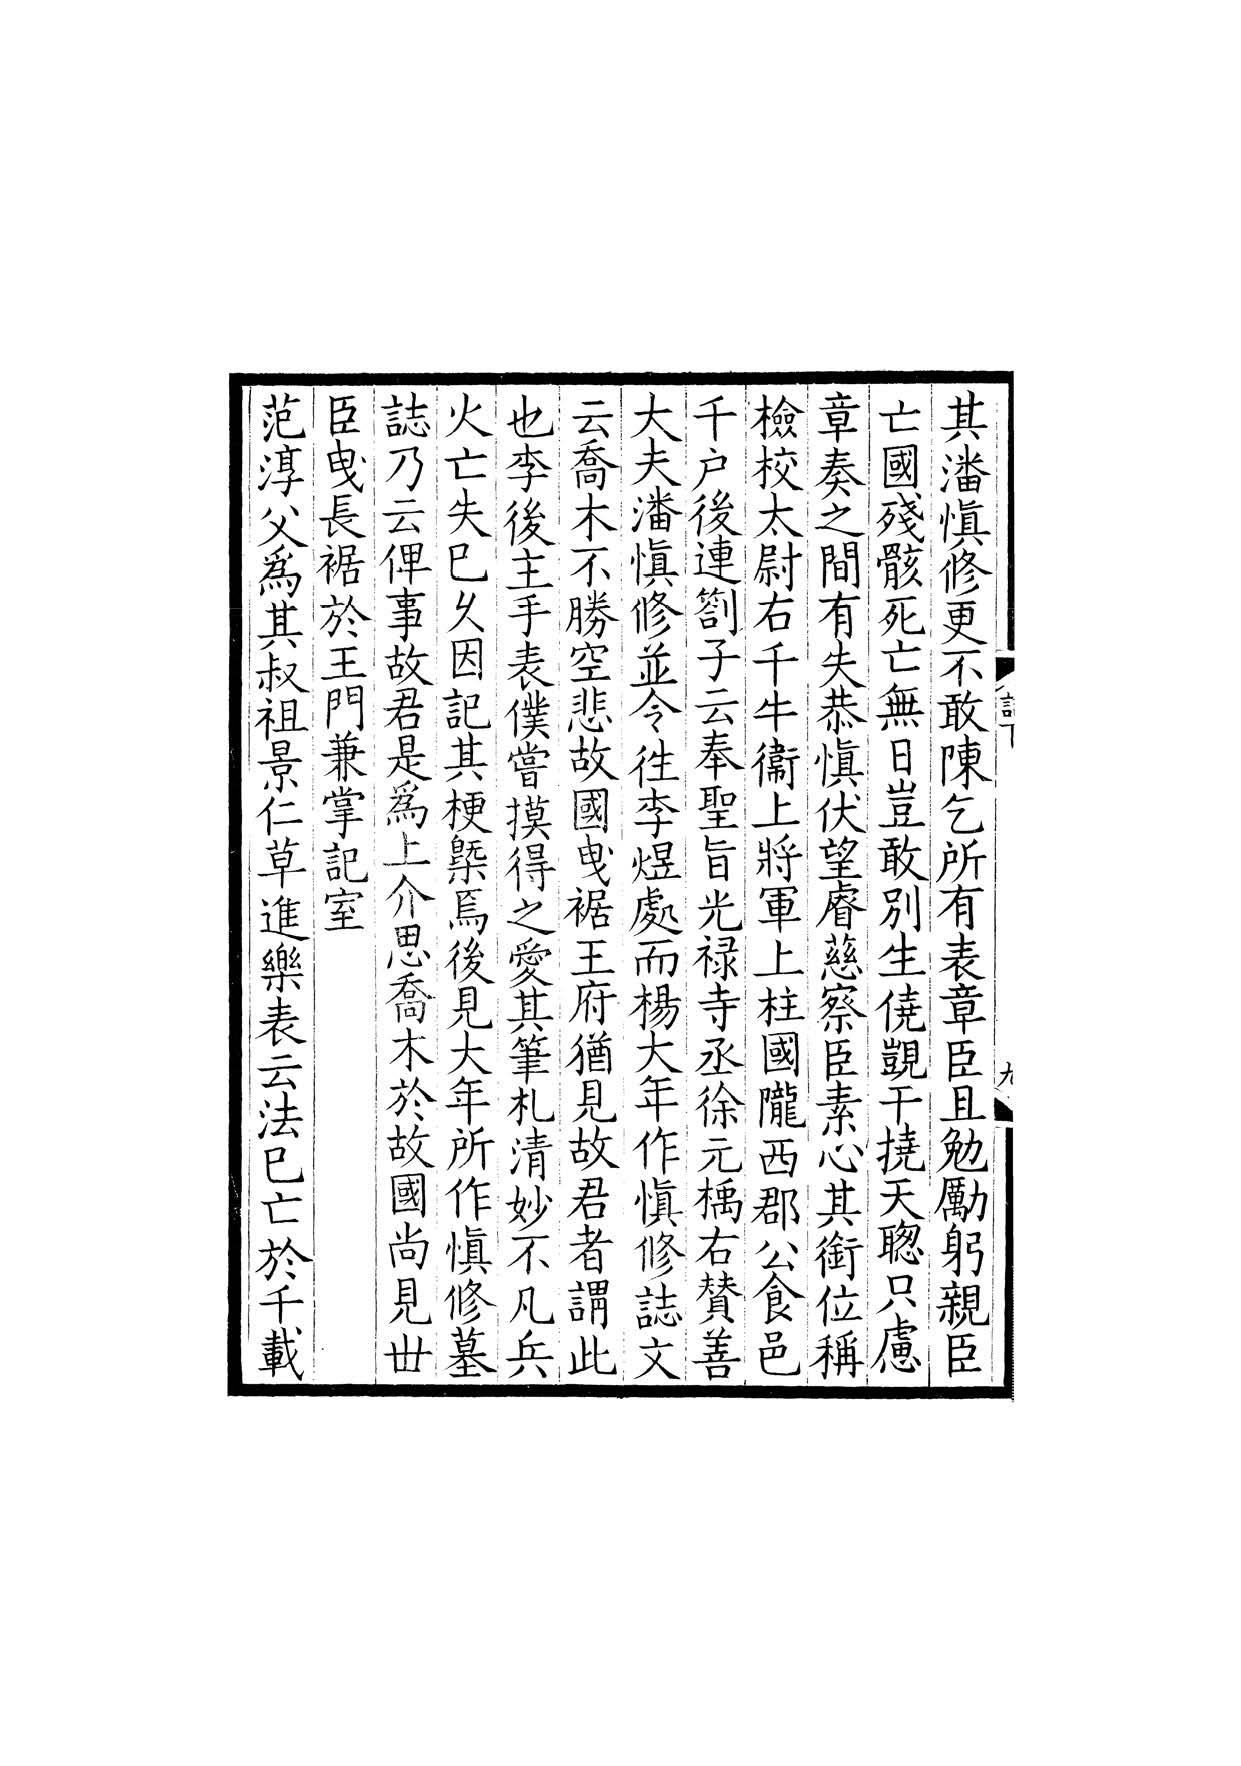 其潘慎修更不敢陳乞所有表章臣且勉勵躬親臣
亡國殘骸死亡無日豈敢別生僥覬干撓天聰只慮
章奏之間有失恭慎伏望睿慈察臣素心其銜位稱
檢校太尉右千牛衛上將軍上柱國隴西郡公食邑
千户後連劄子云奉聖旨光禄寺丞徐元楀右贊善
大夫潘慎修並令徃李煜處而楊大年作慎修誌文
云喬木不勝空悲故國曳裾王府猶見故君者謂此
也李後主手表僕嘗摸得之愛其筆札清妙不凡兵
火亡失巳乆因記其梗槩焉後見大年所作慎修墓
誌乃云俾事故君是爲上介思喬木於故國尚見丗
臣曳長裾於王門兼掌記室
范淳父爲其叔祖景仁草進樂表云法巳亡於千載
九